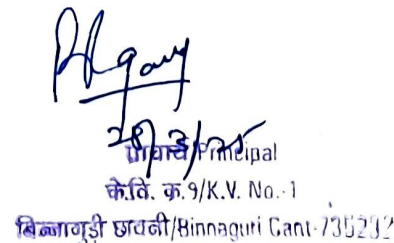 28/3/25
प्राचार्य/Principal
के.वि. क्र.१/K.V. No.-1
बिन्नागुड़ी छावनी/Binnaguri Cant-735232